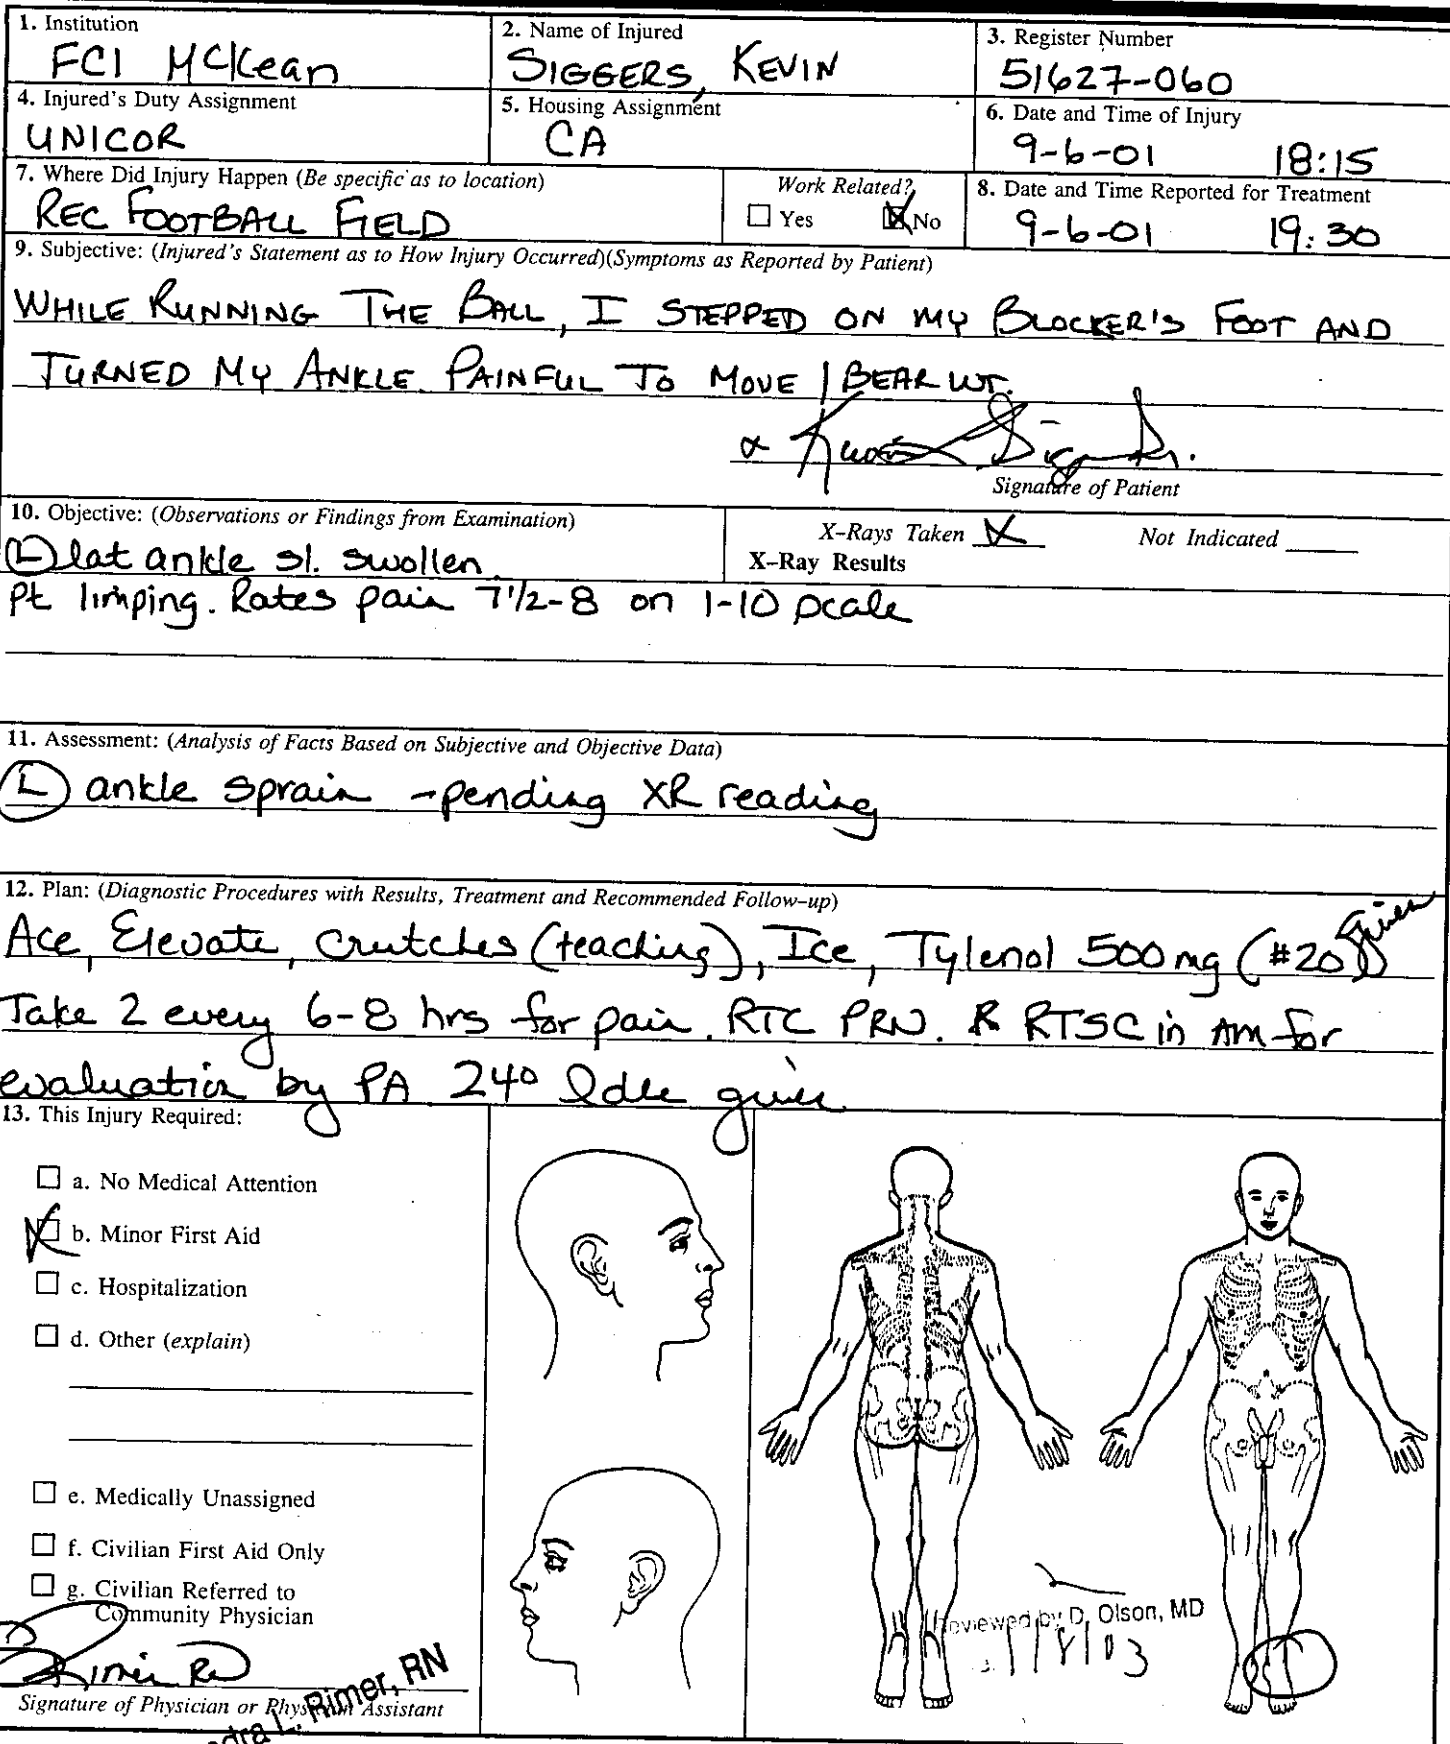 1. Institution
FCI McKean
2. Name of Injured
SIGGERS, KEVIN
3. Register Number
51627-060
4. Injured's Duty Assignment
UNICOR
5. Housing Assignment
CA
6. Date and Time of Injury
9-6-01 18:15
7. Where Did Injury Happen (Be specific as to location)
REC FOOTBALL FIELD
Work Related?
Yes No
8. Date and Time Reported for Treatment
9-6-01 19:30
9. Subjective: (Injured's Statement as to How Injury Occurred)(Symptoms as Reported by Patient)
WHILE RUNNING THE BALL, I STEPPED ON MY BLOCKER'S FOOT AND
TURNED MY ANKLE. PAINFUL TO MOVE / BEAR WT.
Signature of Patient
10. Objective: (Observations or Findings from Examination)
X-Rays Taken Not Indicated
X-Ray Results
L lat ankle sl. swollen
Pt limping. Rates pain 7 1/2-8 on 1-10 scale
11. Assessment: (Analysis of Facts Based on Subjective and Objective Data)
L ankle sprain - pending XR reading
12. Plan: (Diagnostic Procedures with Results, Treatment and Recommended Follow-up)
Ace, Elevate, Crutches (teaching), Ice, Tylenol 500 mg (#20) given
Take 2 every 6-8 hrs for pain. RTC PRN. RTSC in AM for
evaluation by PA 24° Idle given
13. This Injury Required:
a. No Medical Attention
b. Minor First Aid
c. Hospitalization
d. Other (explain)
e. Medically Unassigned
f. Civilian First Aid Only
g. Civilian Referred to
Community Physician
Reviewed by D. Olson, MD
Rimer RN
Signature of Physician or Physician Assistant
L. Rimer, RN